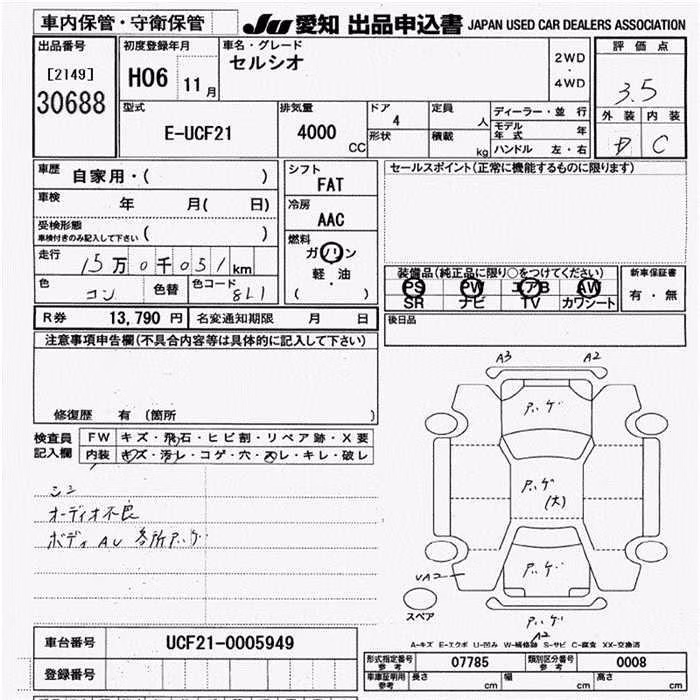 車内保管・守衛保管
JU 愛知 出品申込書 JAPAN USED CAR DEALERS ASSOCIATION
出品番号
[2149]
30688
初度登録年月
H06 11月
車名・グレード
セルシオ
2WD
・
4WD
評価点
3.5
外装 内装
D C
型式
E-UCF21
排気量
4000 CC
ドア
4
形状
定員
人
積載
kg
ディーラー・並行
モデル年式 年
ハンドル 左・右
車歴 自家用・( )
車検 年 月( 日)
受検形態
車検付きのみ記入して下さい ( )
走行 15万0千051km
色 コン 色替 色コード 8L1
シフト
FAT
冷房
AAC
燃料
ガソリン
・
軽・油
( )
セールスポイント(正常に機能するものに限ります)
装備品(純正品に限り○をつけてください)
PS PW エアB AW
SR ナビ TV カワシート
新車保証書
有・無
後日品
R券 13,790円 名変通知期限 月 日
注意事項申告欄(不具合内容等は具体的に記入して下さい)
修復歴 有 (箇所 )
検査員
記入欄
FW キズ・飛石・ヒビ割・リペア跡・X要
内装 キズ・汚レ・コゲ・穴・スレ・キレ・破レ
オーディオ不良
ボディ AU 各所ハゲ
A3 A2
ハゲ
ハゲ
(大)
ハゲ
UA2
スペア
ハゲ
A2
A-キズ E-エクボ U-凹み W-補修跡 S-サビ C-腐食 XX-交換済
車台番号 UCF21-0005949
登録番号
形式指定番号
参考
07785
類別区分番号
参考
0008
車庫証明用
参考
長さ cm 幅 cm 高さ cm